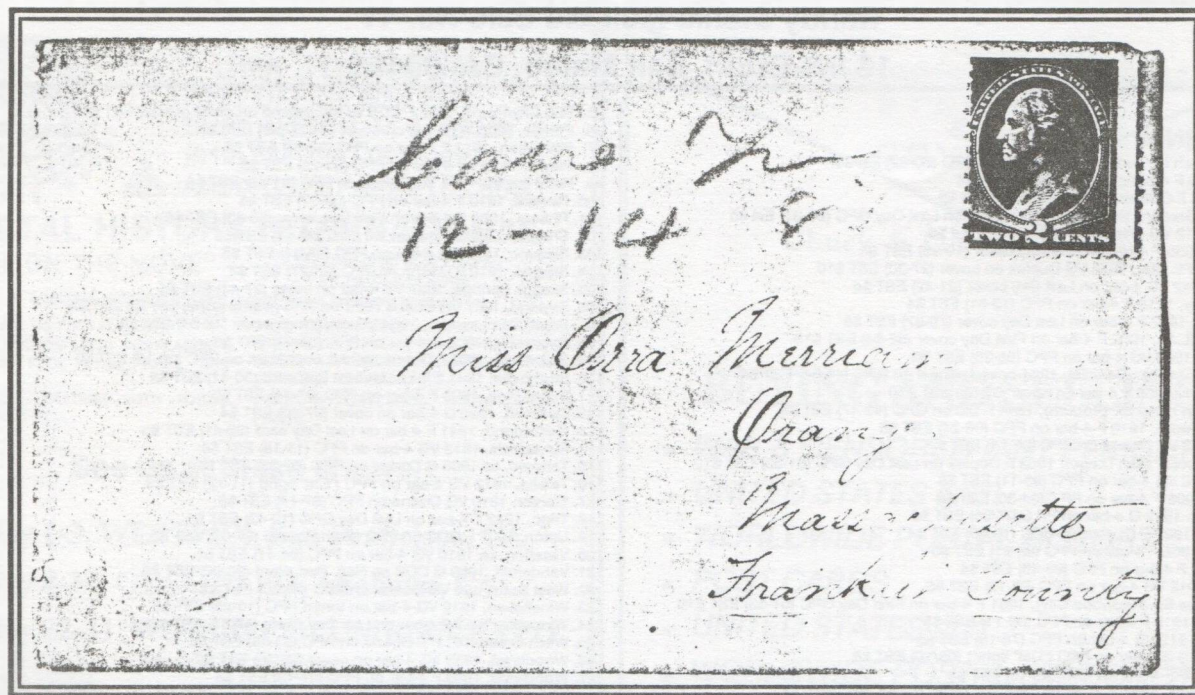 12-14 8
UNITED STATES POSTAGE
TWO 2 CENTS
Miss Orra Merriam
Orange
Massachusetts
Franklin County